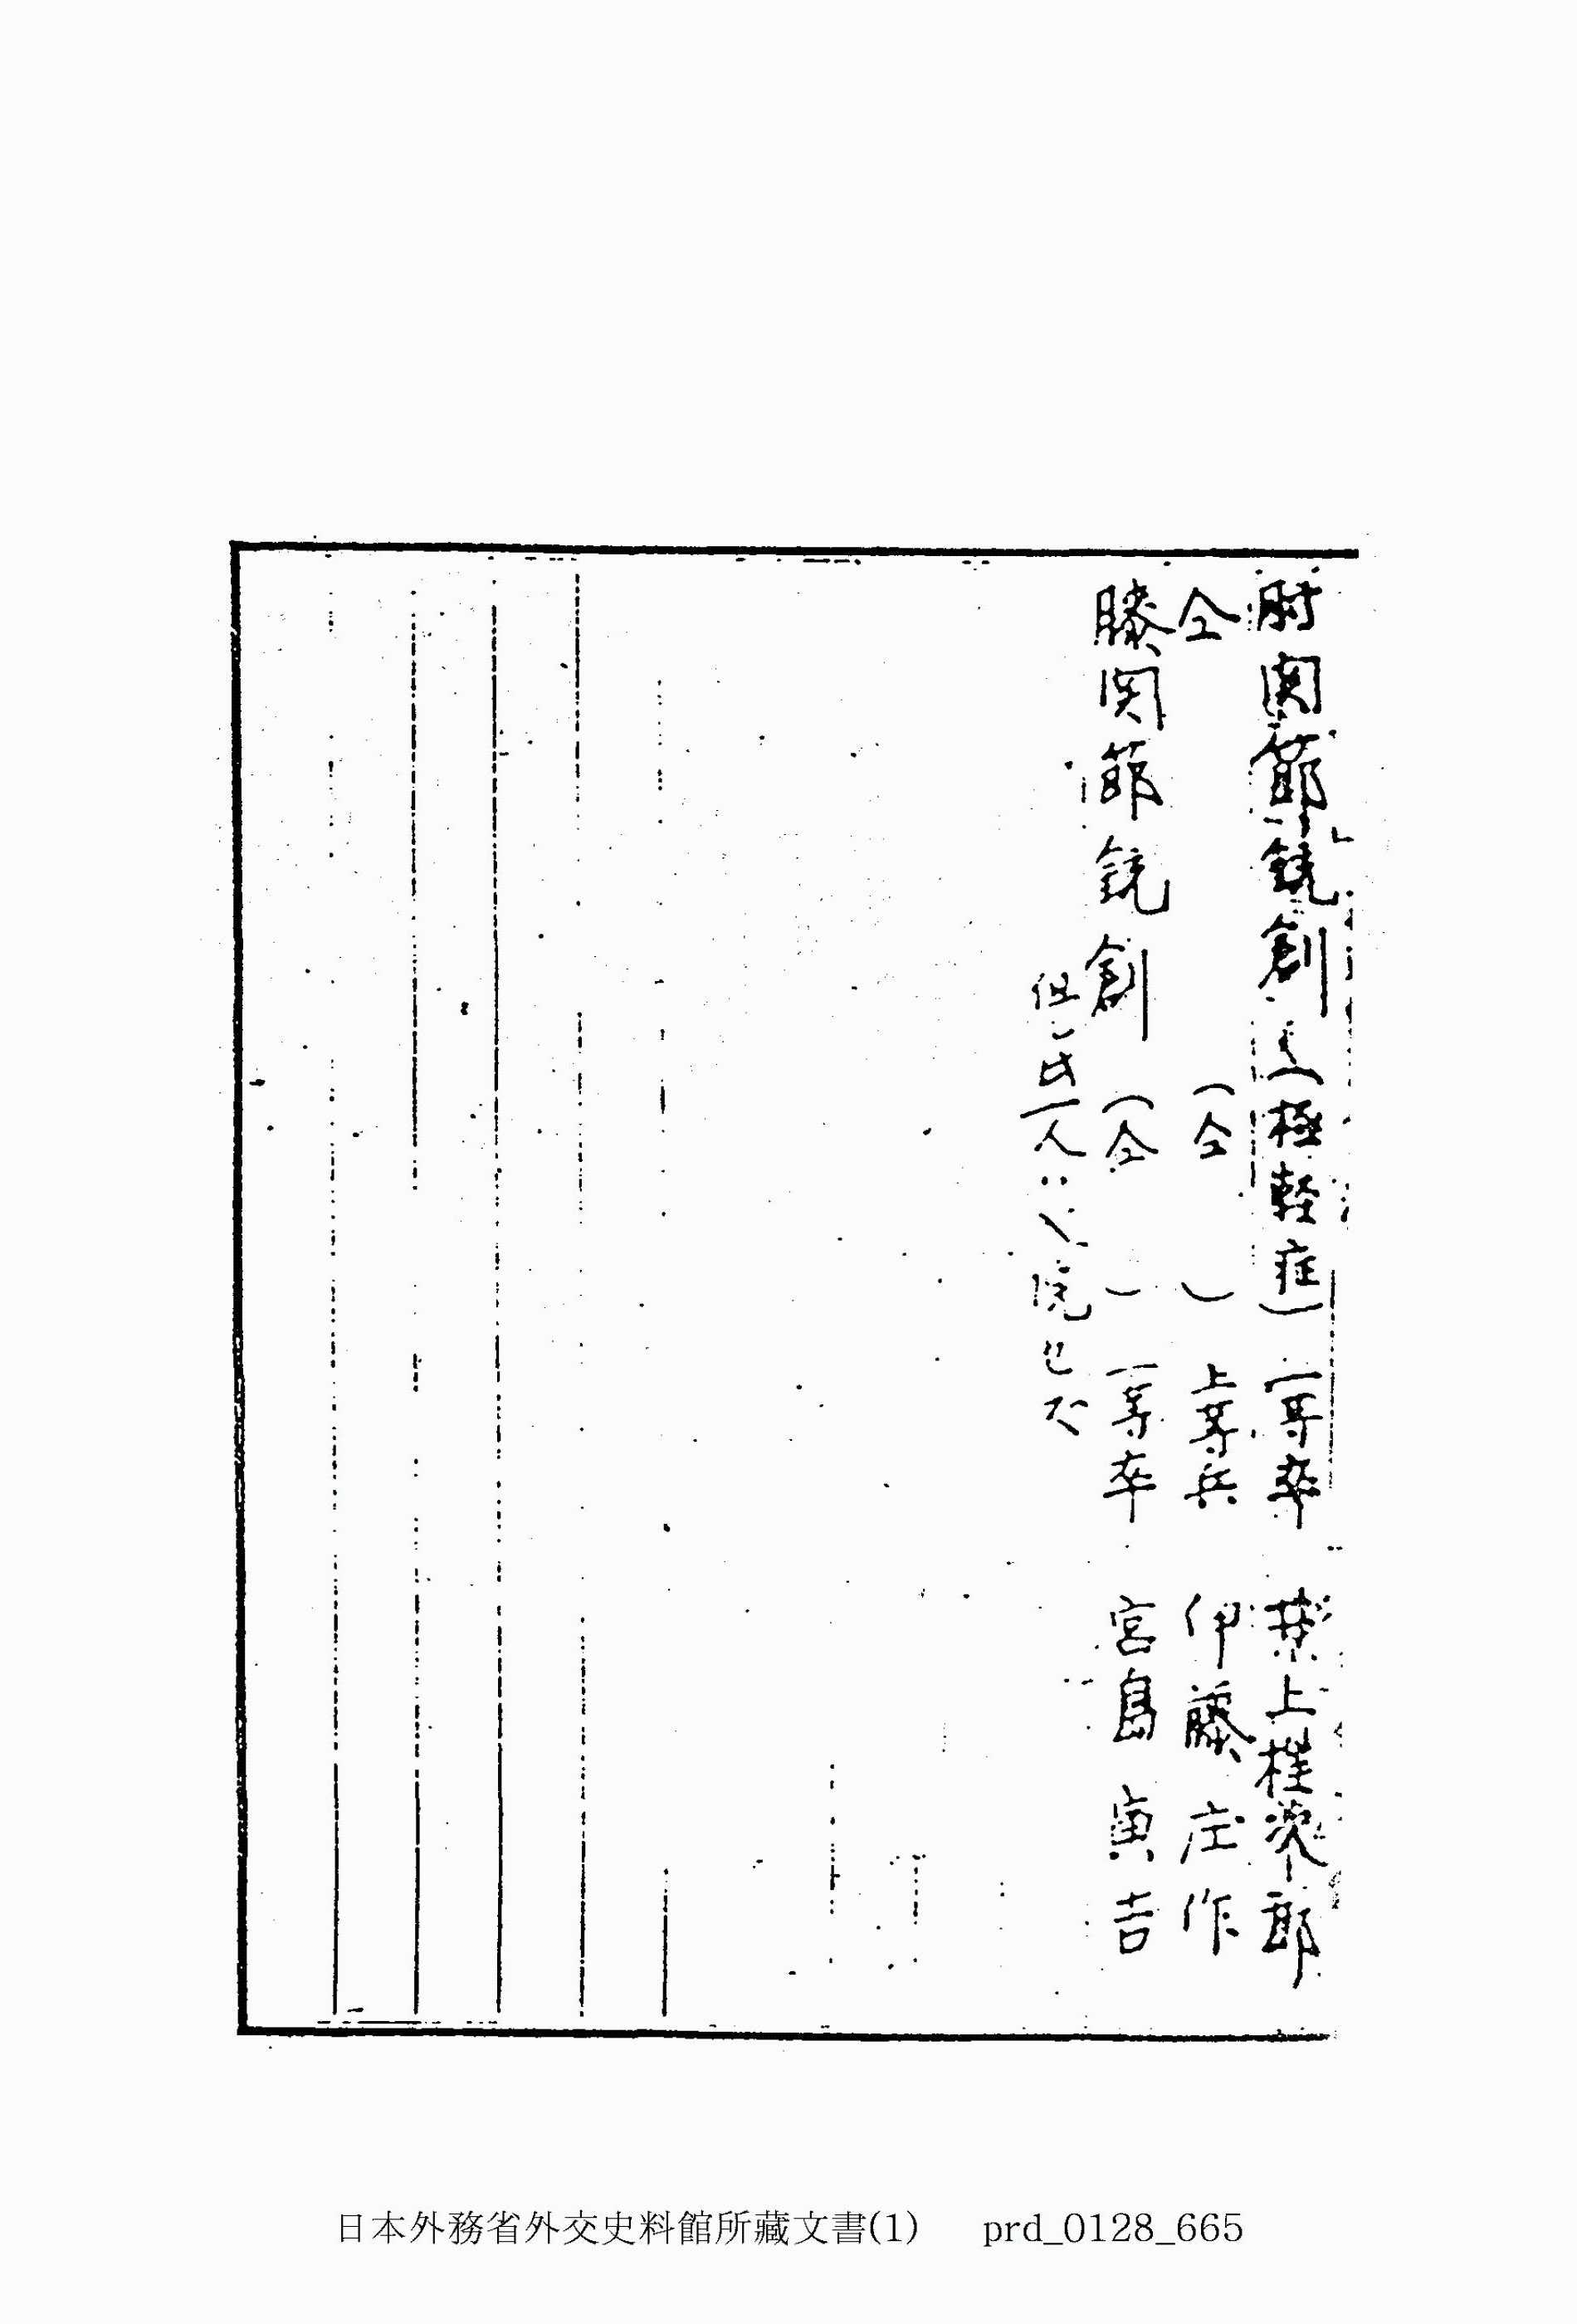 肘関節銃創(極軽症)一等卒 井上桂次郎
仝 (仝 ) 上等兵 伊藤庄作
膝関節銃創 (仝 ) 一等卒 宮島寅吉
但シ此一人ハ入院セズ
日本外務省外交史料館所藏文書(1) prd_0128_665